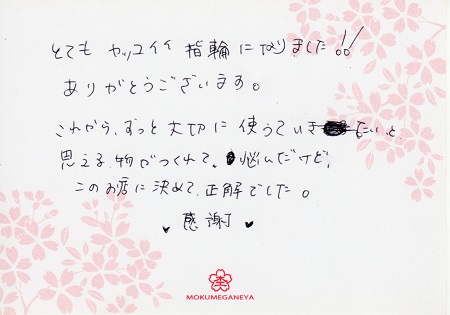 とても カッコイイ 指輪 に なりました!!
ありがとうございます。
これから、ずっと 大切に 使っていきたい と
思える 物がつくれて、悩んだけど、
このお店に決めて、正解でした。
感謝
MOKUMEGANEYA